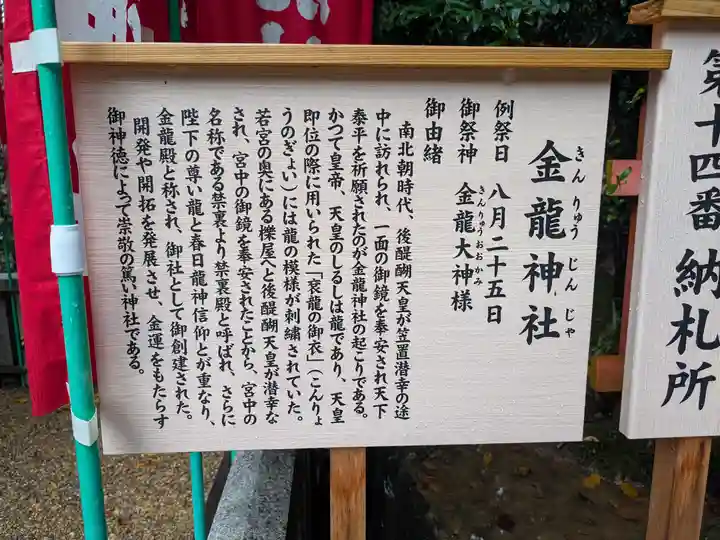 第十四番 納札所
金龍神社
きんりゅうじんじゃ
例祭日 八月二十五日
御祭神 金龍大神様
きんりゅうおおかみ
御由緒
南北朝時代、後醍醐天皇が笠置潜幸の途
中に訪れられ、一面の御鏡を奉安され天下
泰平を祈願されたのが金龍神社の起こりである。
かつて皇帝、天皇のしるしは龍であり、天皇
即位の際に用いられた「袞龍の御衣」（こんりょ
うのぎょい）には龍の模様が刺繍されていた。
若宮の奥にある櫟屋へと後醍醐天皇が潜幸な
され、宮中の御鏡を奉安されたことから、宮中の
名称である禁裏より禁裏殿と呼ばれ、さらに
陛下の尊い龍と春日龍神信仰とが重なり、
金龍殿と称され、御社として御創建された。
開発や開拓を発展させ、金運をもたらす
御神徳によって崇敬の篤い神社である。